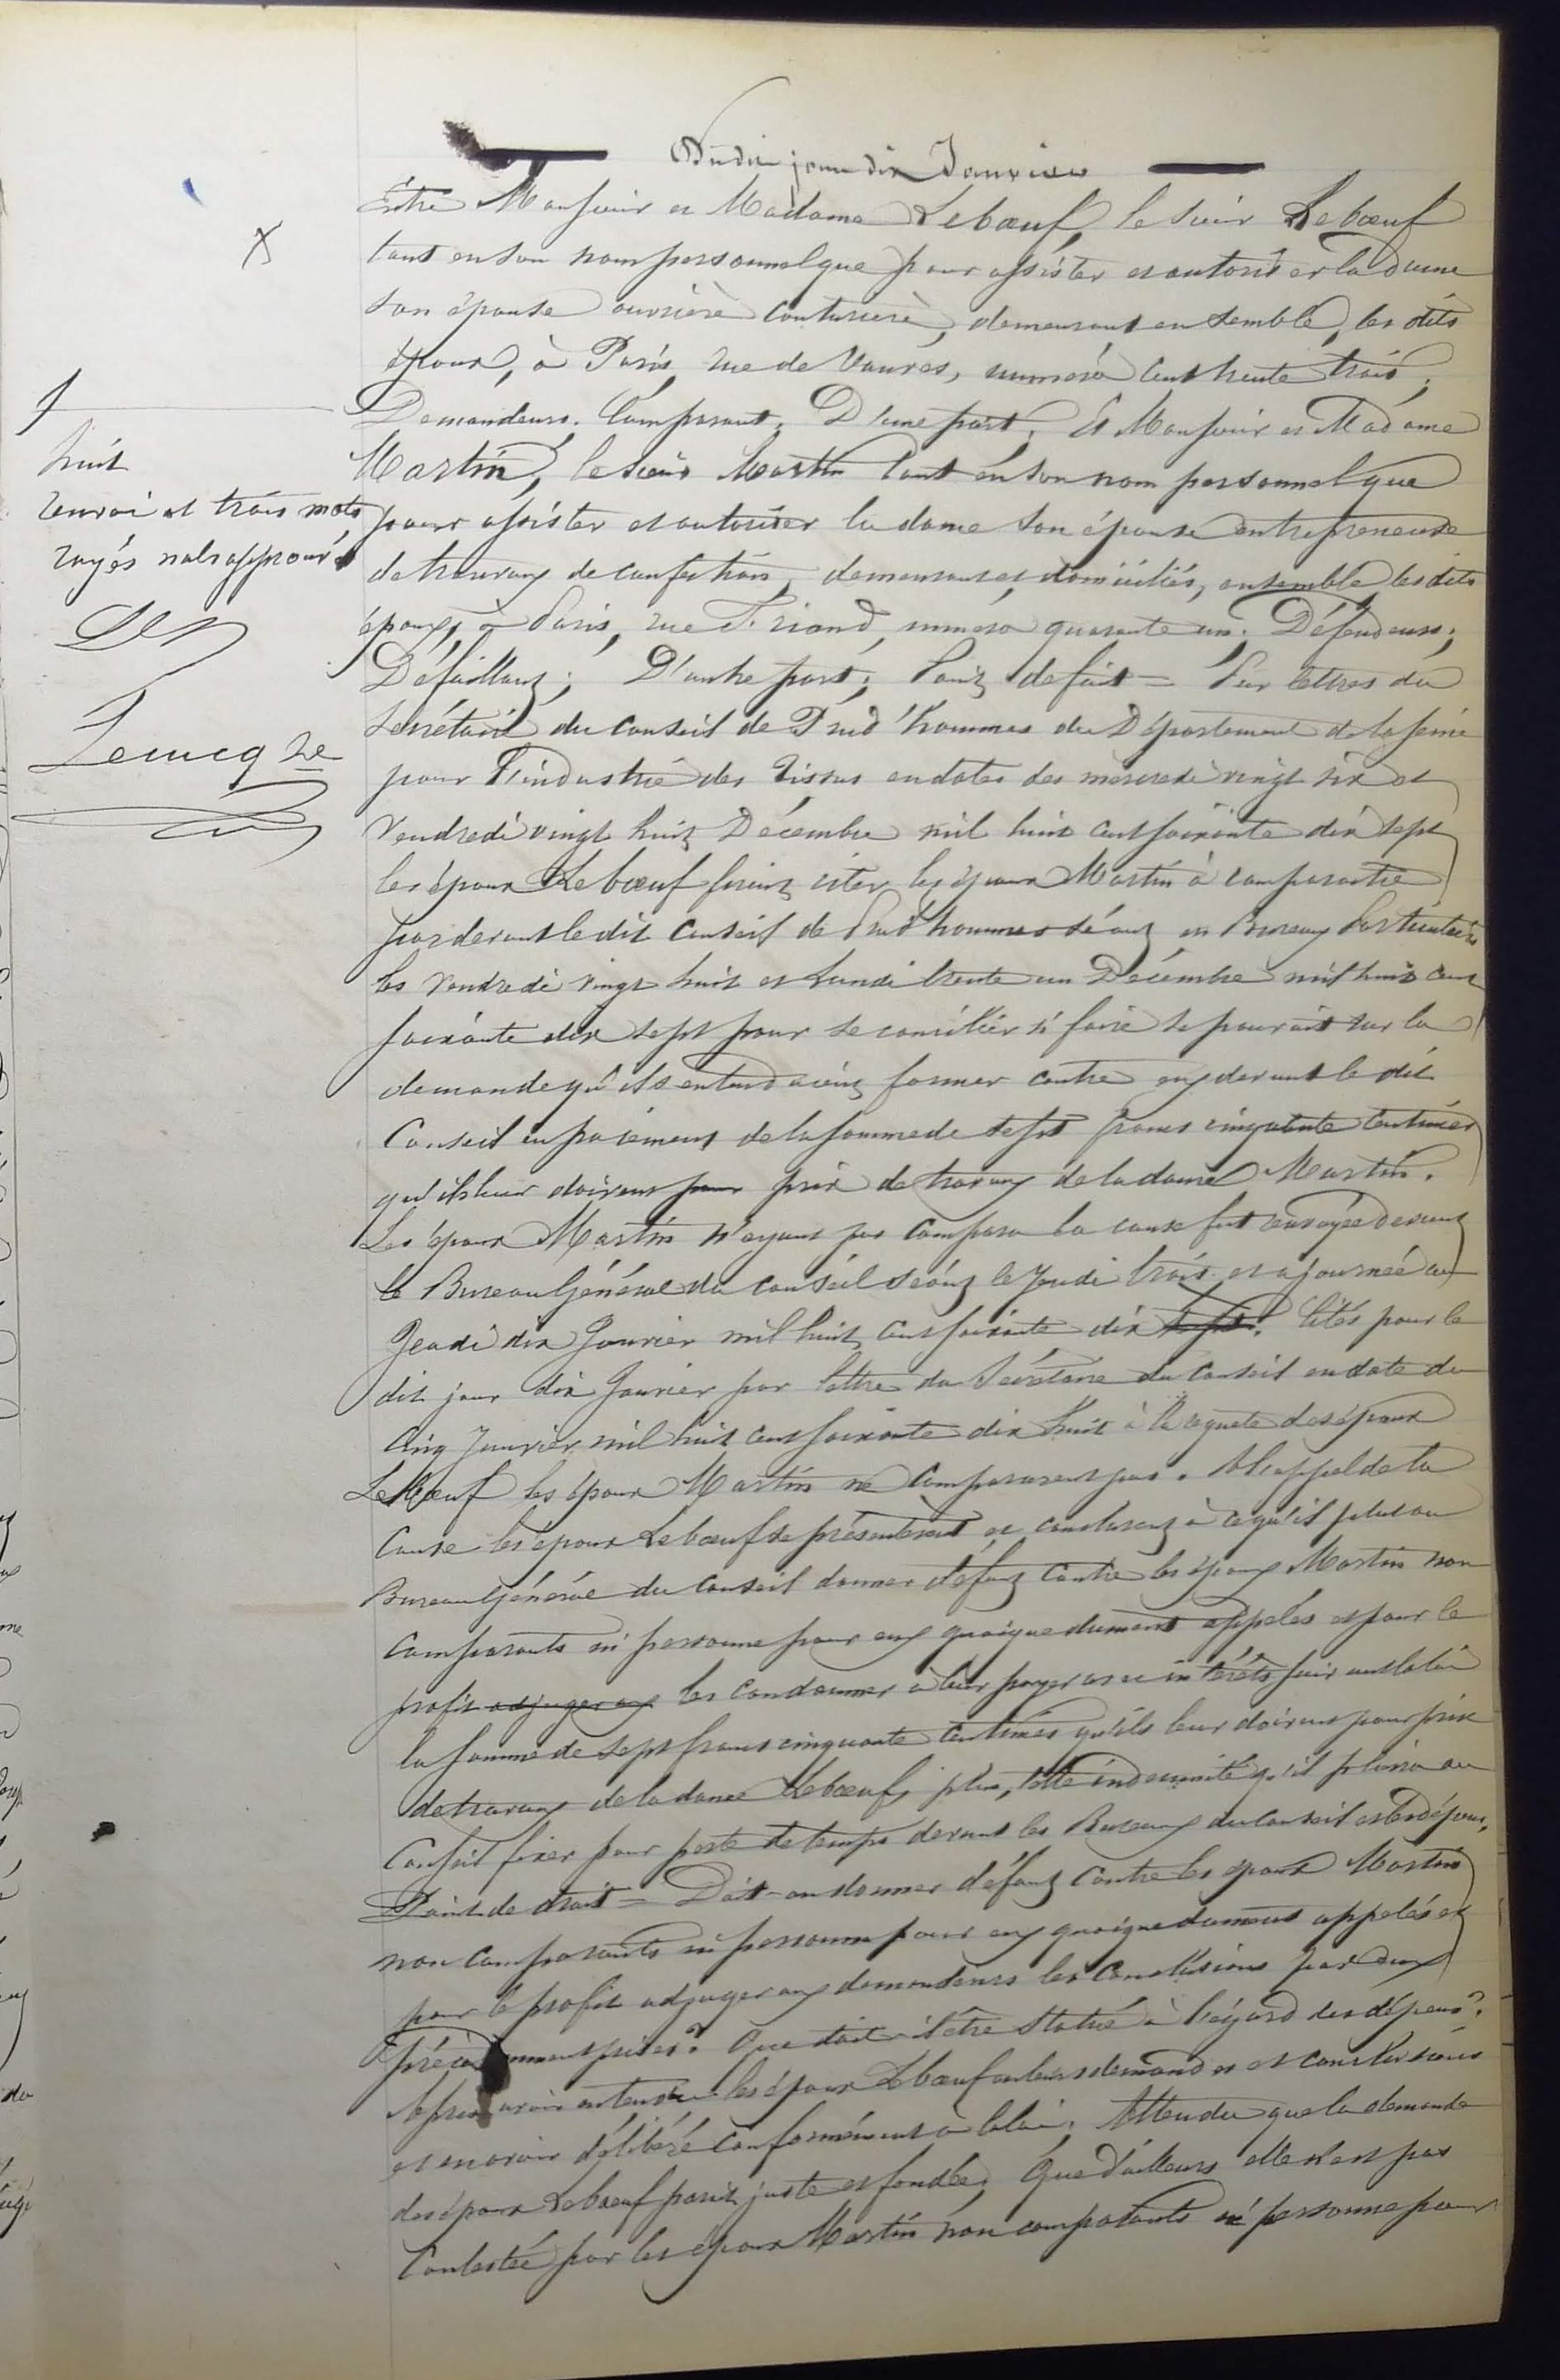 Dudit jour dix Janvier
Entre Monsieur et Madame Leboeuf, le sieur Leboeuf
tant en son nom personnel que pour assister et autoriser la dame
son épouse ouvrière couturière, demeurant ensemble, les dits
époux, à Paris, rue de Vanves, numéro cent trente trois;
Demandeurs; Comparant; D'une part; Et Monsieur et Madame
Martin, le sieur Martin tant en son nom personnel que
pour assister et autoriser la dame son épouse entrepreneuse
de travaux de confections, demeurant et domiciliés, ensemble les dits
époux, à Paris, rue Friand, numéro quarante un; Défendeurs;
Défaillant; D'autre part; Point de fait = Par lettres du
Secrétaire du Conseil de Prud'hommes du Département de la Seine
pour l'industrie des Tissus en dates des mercredi vingt six et
Vendredi vingt huit Décembre mil huit cent soixante dix sept
les époux Leboeuf firent citer les époux Martin à comparaître
par devant le dit Conseil de Prud'hommes séant en Bureaux Particuliers
les Vendredi vingt huit et Lundi trente un Décembre mil huit cent
soixante dix sept pour se concilier si faire se pouvait sur la
demande qu'ils entendaient former contre eux devant le dit
Conseil en paiement de la somme de sept francs cinquante centimes
qu'ils leur doivent pour prix de travaux de la dame Martin.
Les époux Martin n'ayant pas comparu la cause fut renvoyée devant
le Bureau Général du Conseil séant le Jeudi trois et ajournée au
Jeudi dix Janvier mil huit cent soixante dix sept. Cités pour le
dit jour dix Janvier par lettre du Secrétaire du Conseil en date du
cinq Janvier mil huit cent soixante dix huit à la requête des époux
Leboeuf les époux Martin ne comparurent pas. A l'appel de la
cause les époux Leboeuf se présentèrent et conclurent à ce qu'il plut au
Bureau Général du Conseil donner défaut contre les époux Martin non
comparants ni personne pour eux quoique dument appelés et pour le
profit adjuger aux les condamner à leur payer avec intérêts suivant la loi
la somme de sept francs cinquante centimes qu'ils leur doivent pour prix
de travaux de la dame Leboeuf, plus, telle indemnité qu'il plaira au
Conseil fixer pour perte de temps devant les Bureaux du Conseil et les dépens,
Point de droit = Doit-on donner défaut contre les époux Martin
non comparants ni personne pour eux quoique dument appelés et
pour le profit adjuger aux demandeurs les conclusions par eux
précédemment prises? Que doit-il être statué à l'égard des dépens?
Après avoir entendu les époux Leboeuf en leurs demandes et conclusions
et en avoir délibéré conformément à la loi; Attendu que la demande
des époux Leboeuf parait juste et fondée; Que d'ailleurs elle n'est pas
contestée par les époux Martin non comparants ni personne pour
huit
renvoi et trois mots
rayés nuls approuvés
Lecucq